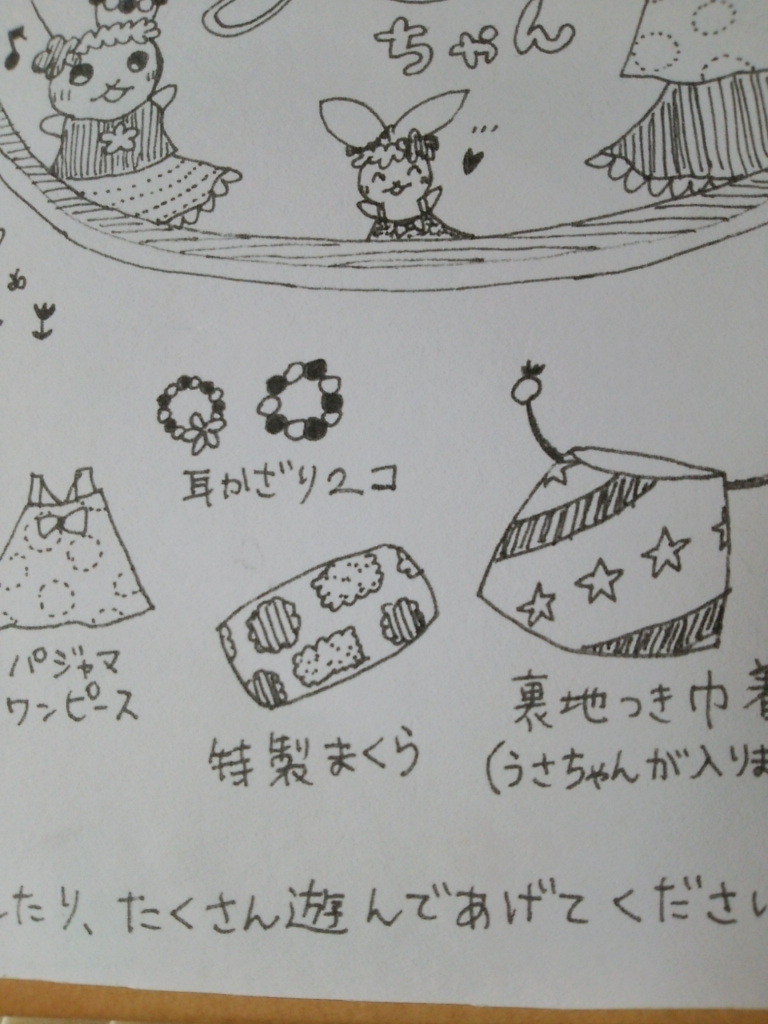 ちゃん
耳かざり2コ
パジャマ
ワンピース
特製まくら
裏地つき巾着
(うさちゃんが入りま
たり、たくさん遊んであげてください